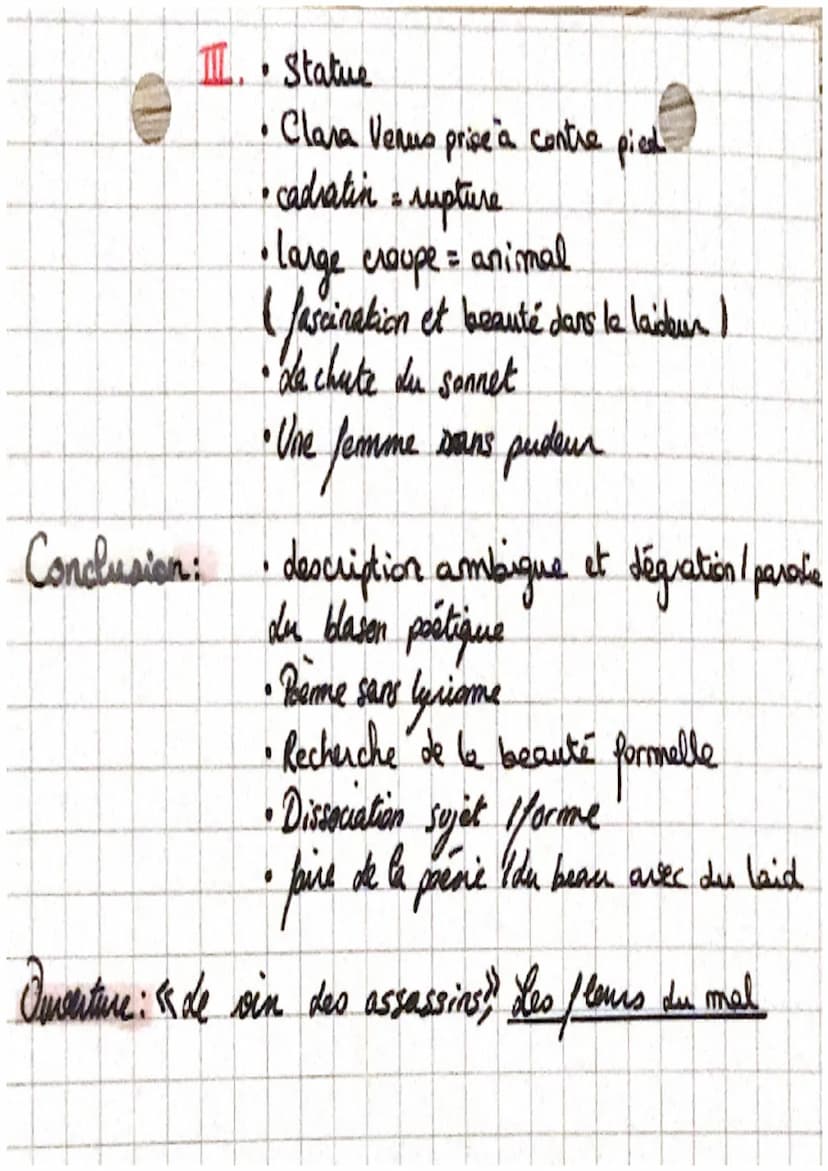 III. • Statue
• Clara Venus prise à contre pied
• cadratin = rupture
• large croupe = animal
( fascination et beauté dans la laideur )
• La chute du sonnet
• Une femme sans pudeur
Conclusion: • description ambigue et dégration / parodie
du blason poétique
• Poème sans lyrisme
• Recherche de la beauté formelle
• Dissociation sujet / forme
• faire de la poésie / du beau avec du laid
Ouverture: « Le vin des assassins», Les fleurs du mal